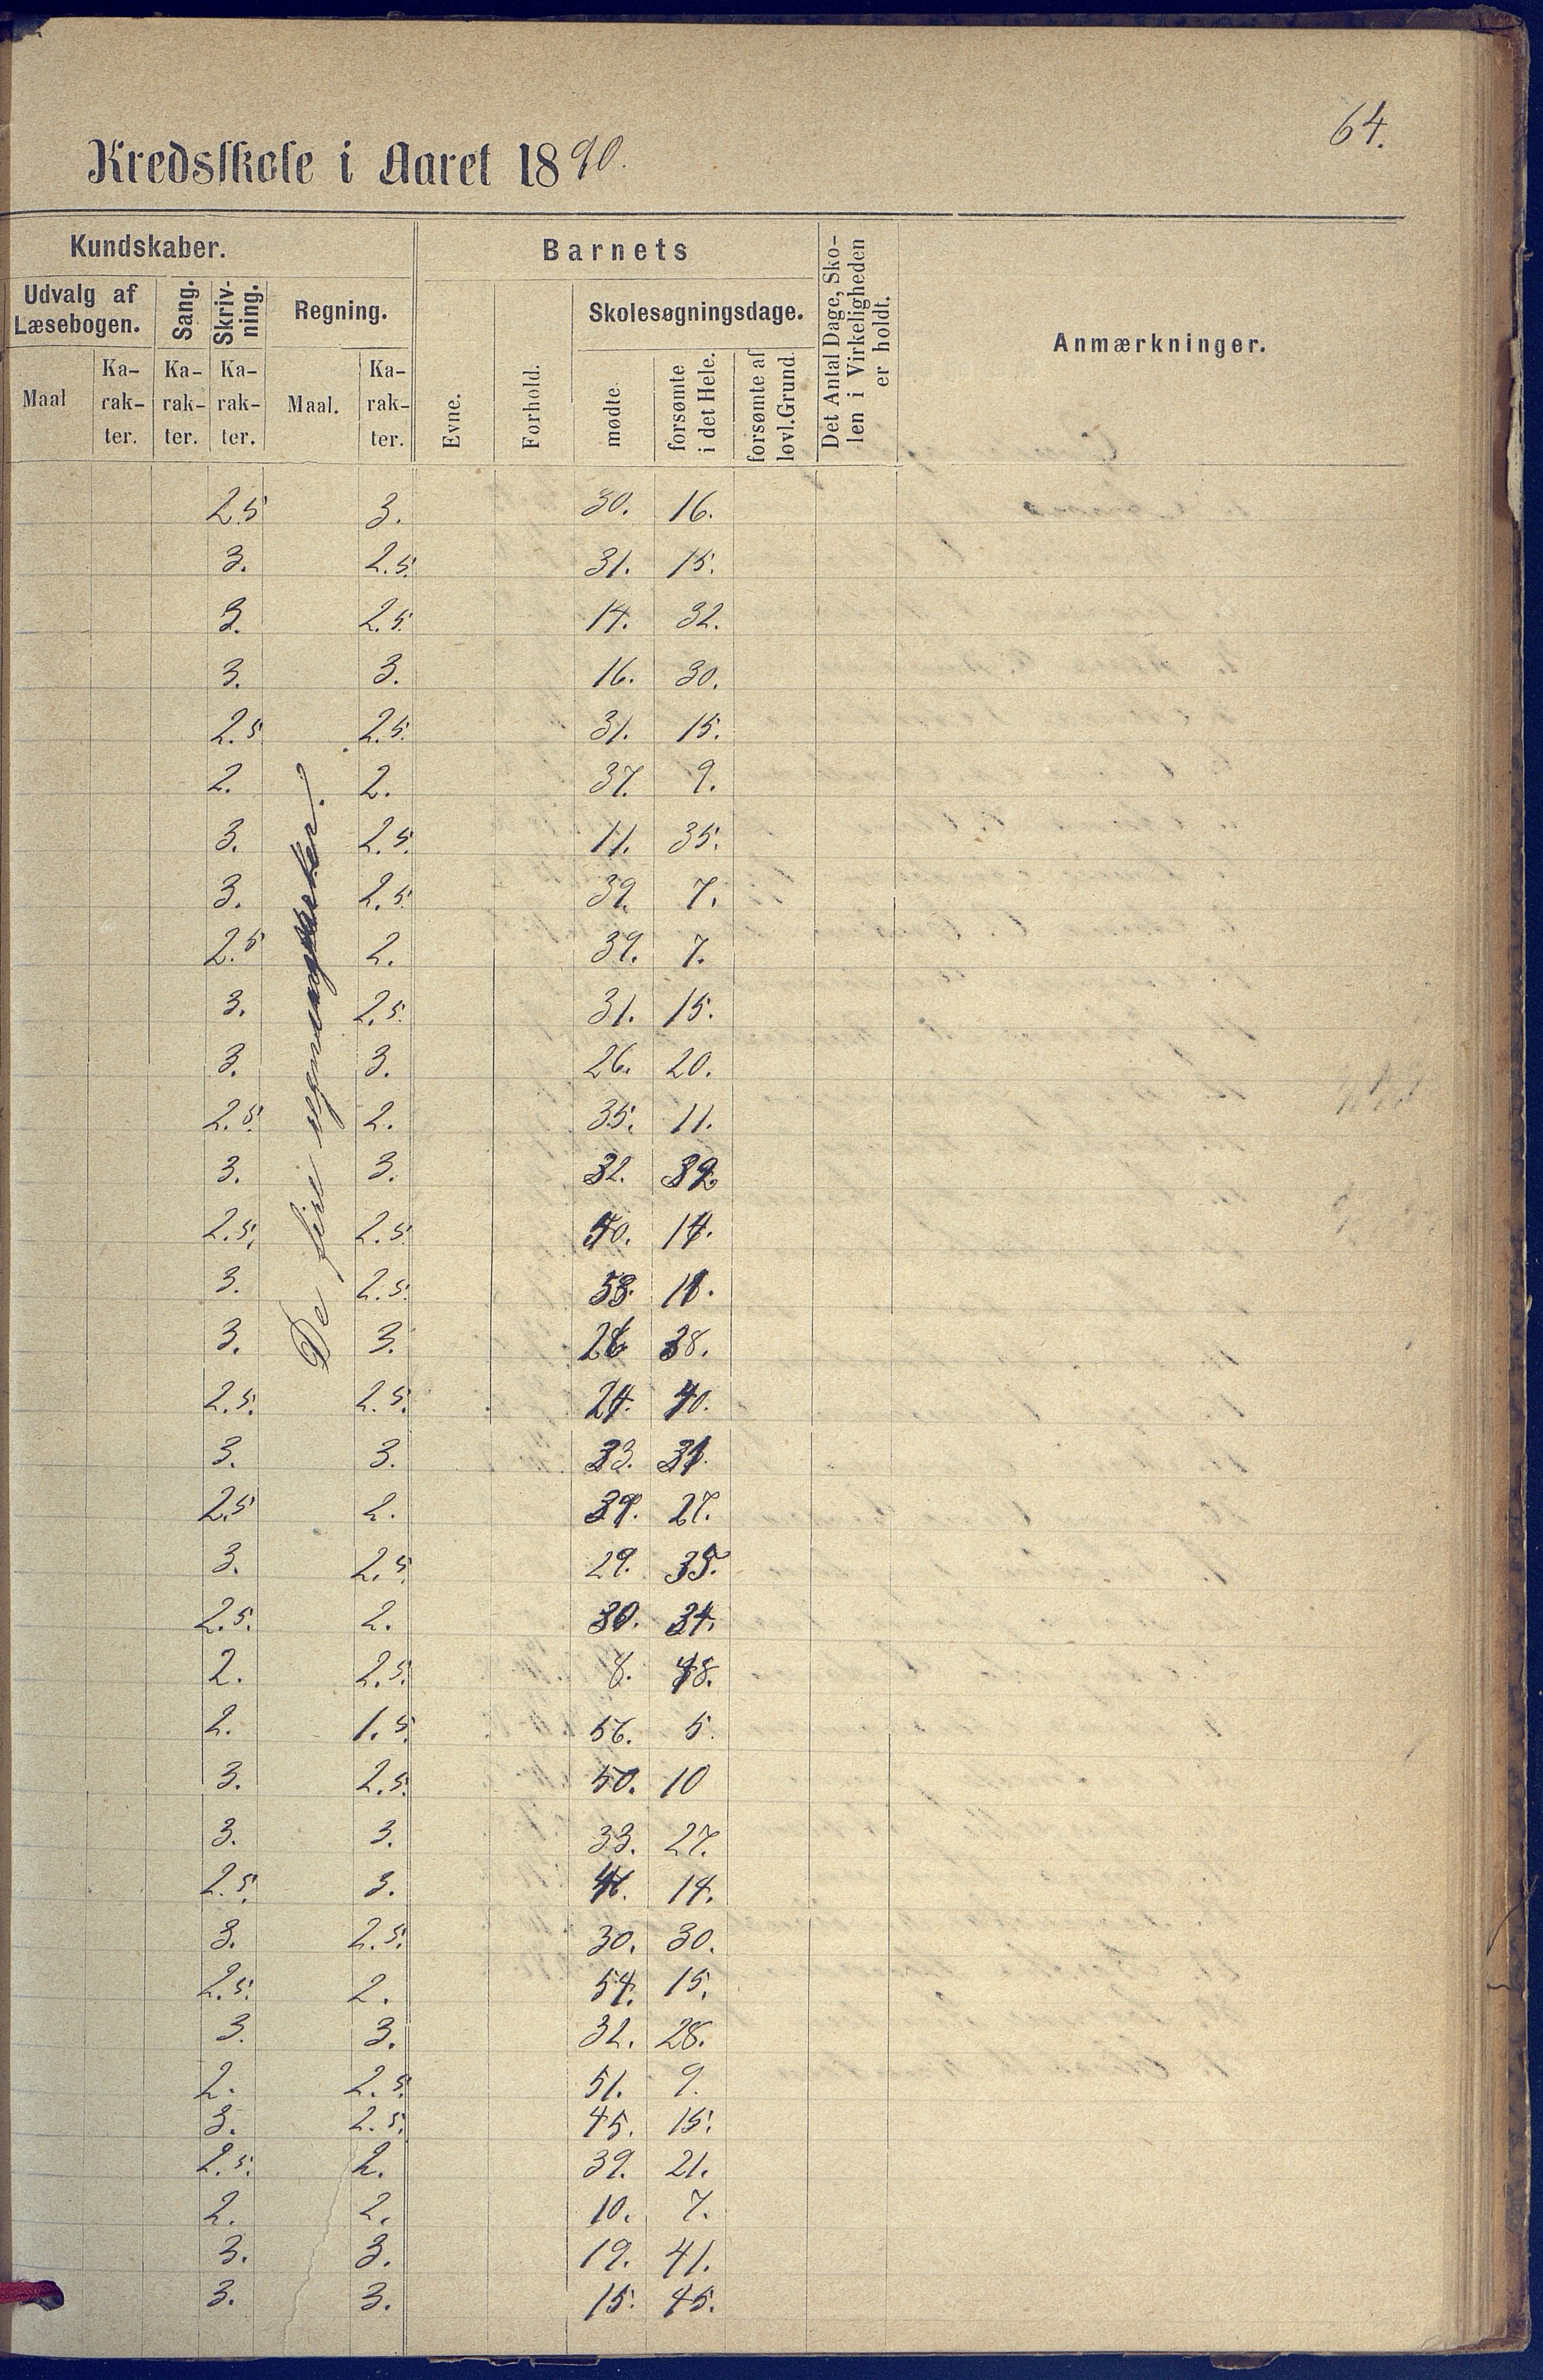 64.
Kredsskole i Aaret 1890.
Kundskaber.
Barnets
Det Antal Dage, Sko-
len i Virkeligheden
er holdt.
Anmærkninger.
Udvalg af
Læsebogen.
Sang.
Skriv-
ning.
Regning.
Evne.
Forhold.
Skolesøgningsdage.
Maal
Ka-
rak-
ter.
Ka-
rak-
ter.
Ka-
rak-
ter.
Maal.
Ka-
rak-
ter.
mødte
forsømte
i det Hele.
forsømte af
lovl. Grund
De fire regningsarter.
2.5 3. 30. 16.
3. 2.5. 31. 15.
3. 2.5. 14. 32.
3. 3. 16. 30.
2.5. 2.5. 31. 15.
2. 2. 37. 9.
3. 2.5. 11. 35.
3. 2.5. 39. 7.
2.5 2. 39. 7.
3. 2.5. 31. 15.
3. 3. 26. 20.
2.5. 2. 35. 11.
3. 3. 32. 32
2.5. 2.5. 50. 14.
3. 2.5. 53. 11.
3. 3. 26 38.
2.5. 2.5. 24. 40.
3. 3. 33. 31.
2.5 2. 37. 27.
3. 2.5. 29. 35.
2.5. 2. 30. 34.
2. 2.5. 8. 48.
2. 1.5. 56. 5.
3. 2.5. 50. 10
3. 3. 33. 27.
2.5. 3. 46. 14.
3. 2.5. 30. 30.
2.5. 2. 54. 15.
3. 3. 32. 28.
2. 2.5. 51. 9.
3. 2.5. 45. 15.
2.5. 2. 39. 21.
2. 2. 10. 7.
3. 3. 19. 41.
3. 3. 15. 45.